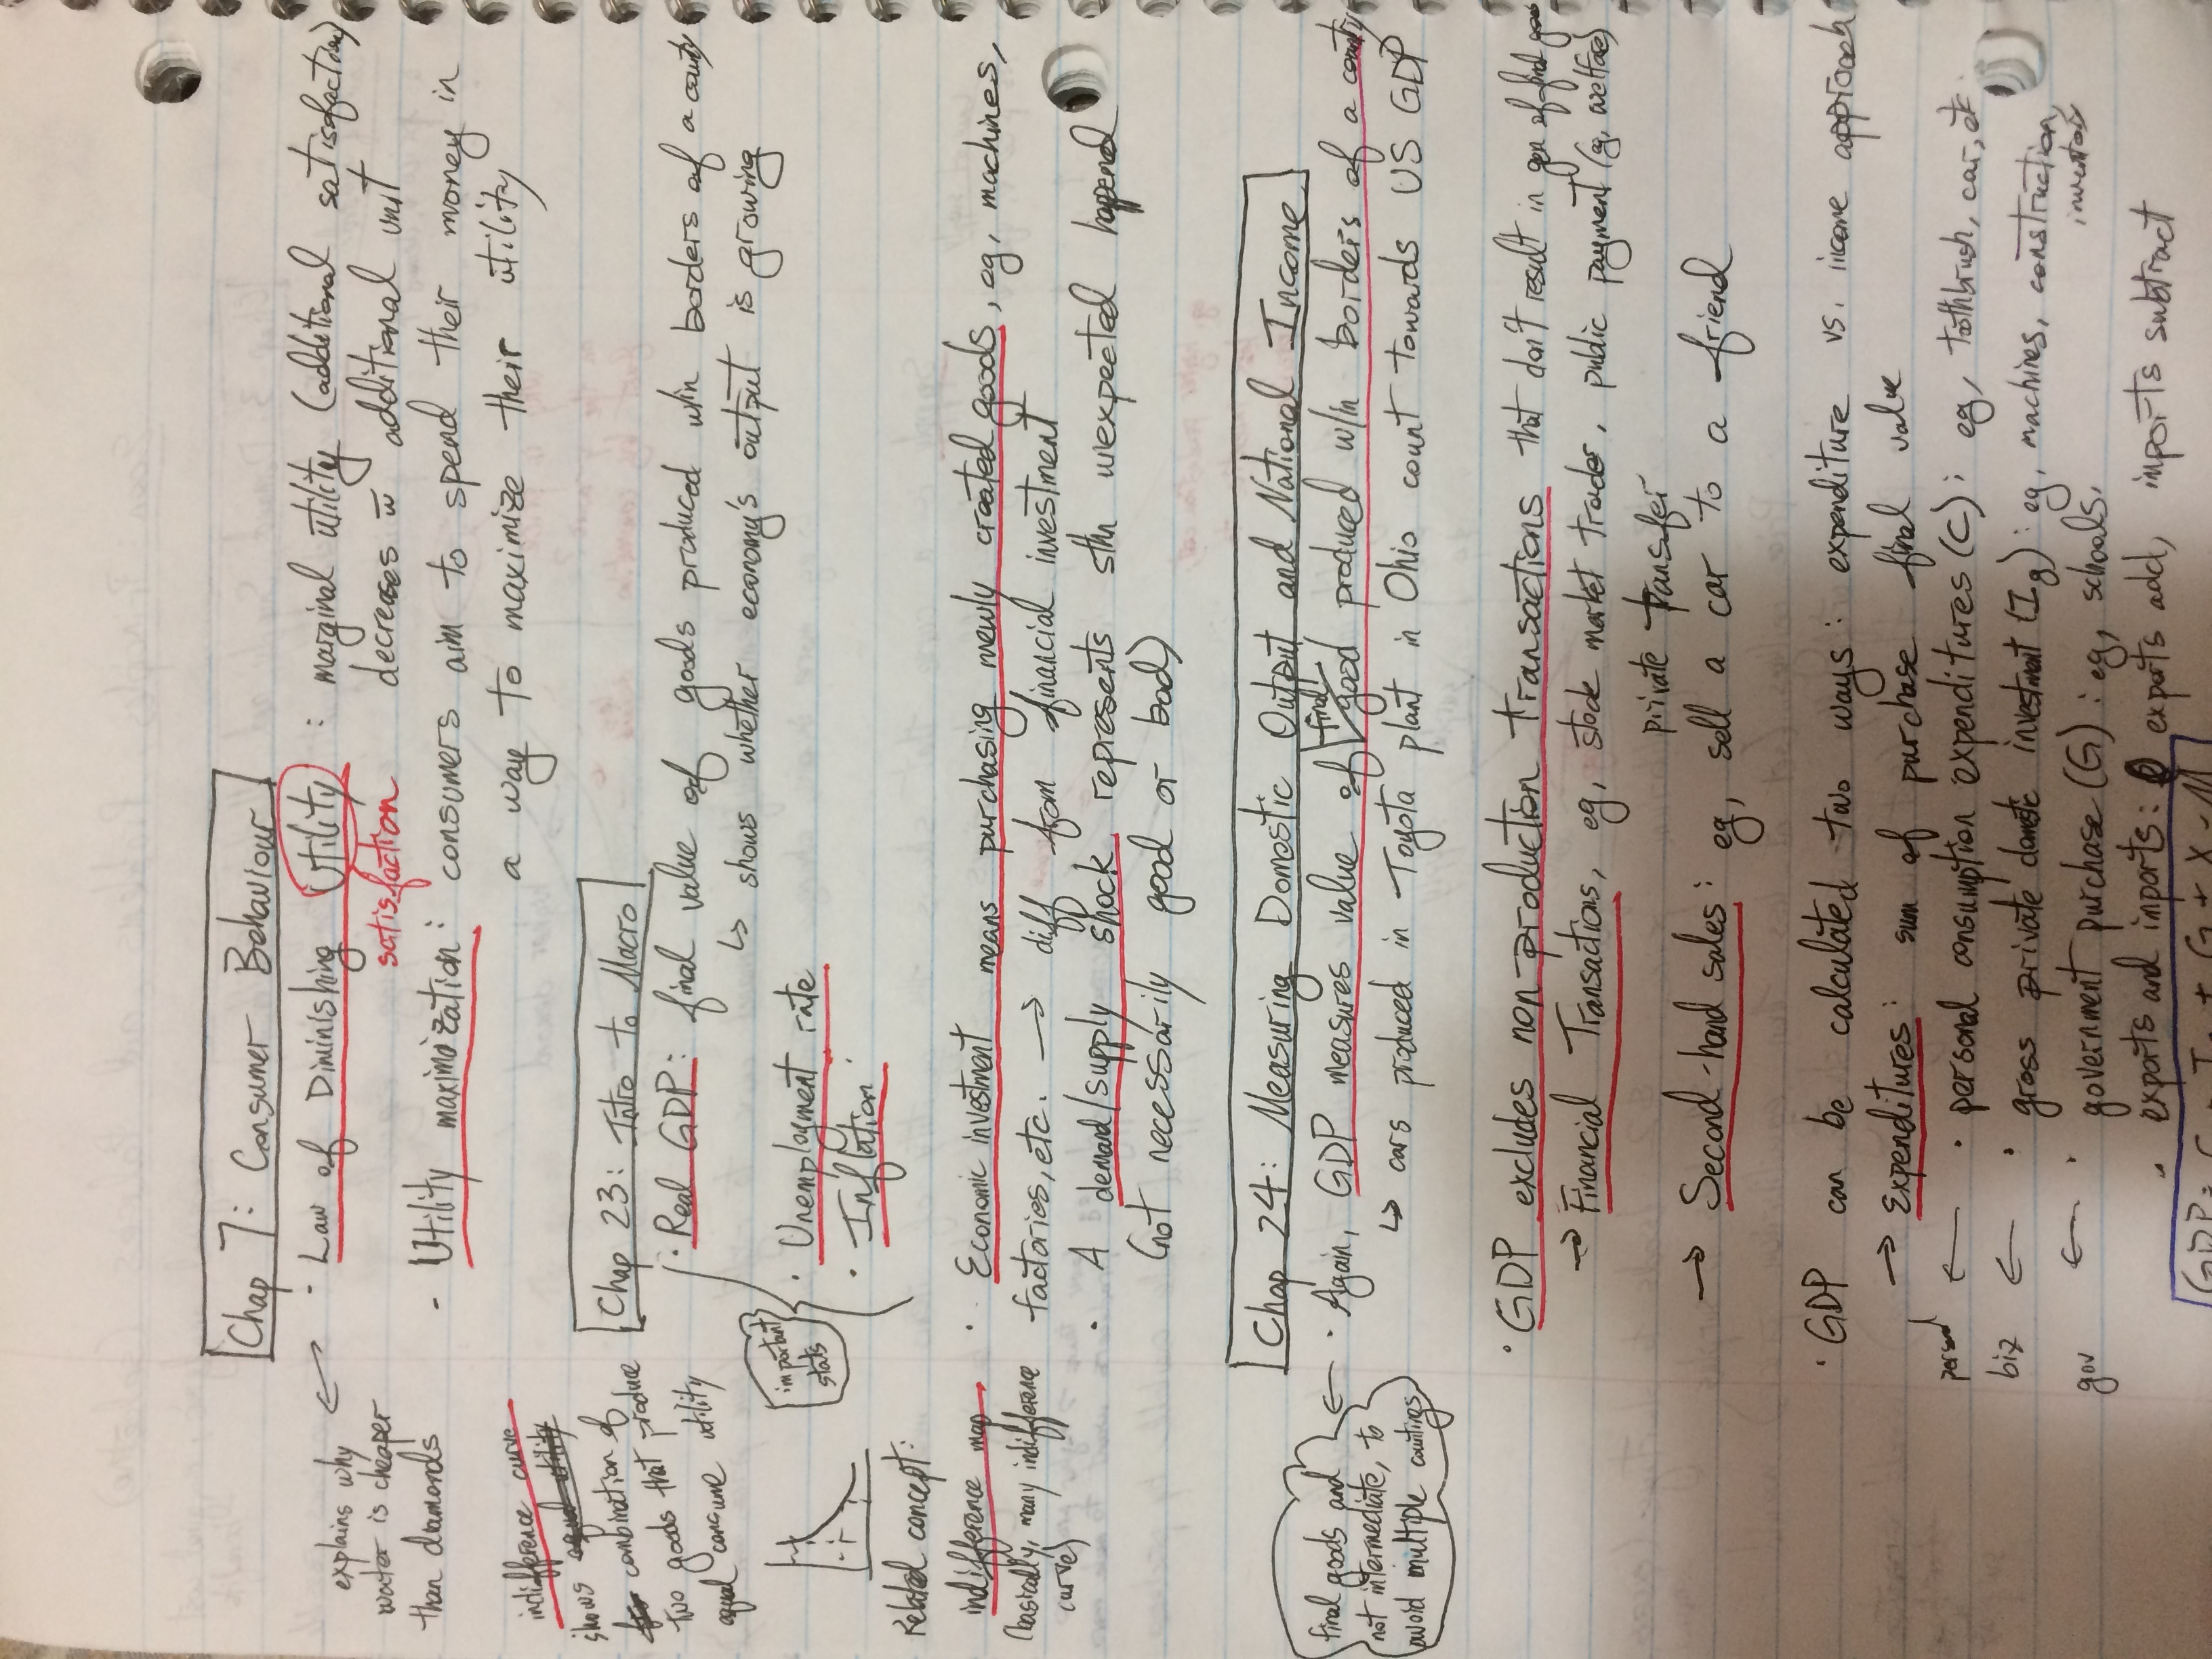 Chap 7: Consumer Behaviour
· Law of Diminishing Utility : marginal utility (additional satisfaction)
satisfaction decreases w̄ additional unit
explains why
water is cheaper
than diamonds
- Utility maximization: consumers aim to spend their money in
a way to maximize their utility
indifference curve
shows equal utility
for combination of
two goods that produce
equal consume utility
Related concept:
indifference map
(basically, many indifference
curve)
Chap 23: Intro to Macro
· Real GDP: final value of goods produced w/in borders of a county
↳ shows whether economy's output is growing
important
stats
· Unemployment rate
· Inflation
· Economic investment means purchasing newly created goods, eg, machines,
factories, etc. → diff from financial investment
· A demand/supply shock represents sthn unexpected happened
(not necessarily good or bad)
Chap 24: Measuring Domestic Output and National Income
final goods and
not intermediate, to
avoid multiple countings
· Again, GDP measures value of final good produced w/in borders of a county
↳ cars produced in Toyota plant in Ohio count towards US GDP
· GDP excludes non-production transactions that don't result in gen of final goo
→ Financial Transactions, eg, stock market trades, public payment (eg, welfare)
private transfer
→ Second-hand sales: eg, sell a car to a friend
· GDP can be calculated two ways: expenditure vs. income approach
→ Expenditures: sum of purchase final value
personal ← · personal consumption expenditures (C): eg, toothbrush, car, etc
biz ← · gross private domestic investment (Ig): eg, machines, construction,
inventory
gov ← · government purchase (G): eg, schools.
· exports and imports: exports add, imports subtract
GDP = C + Ig + G + X - M